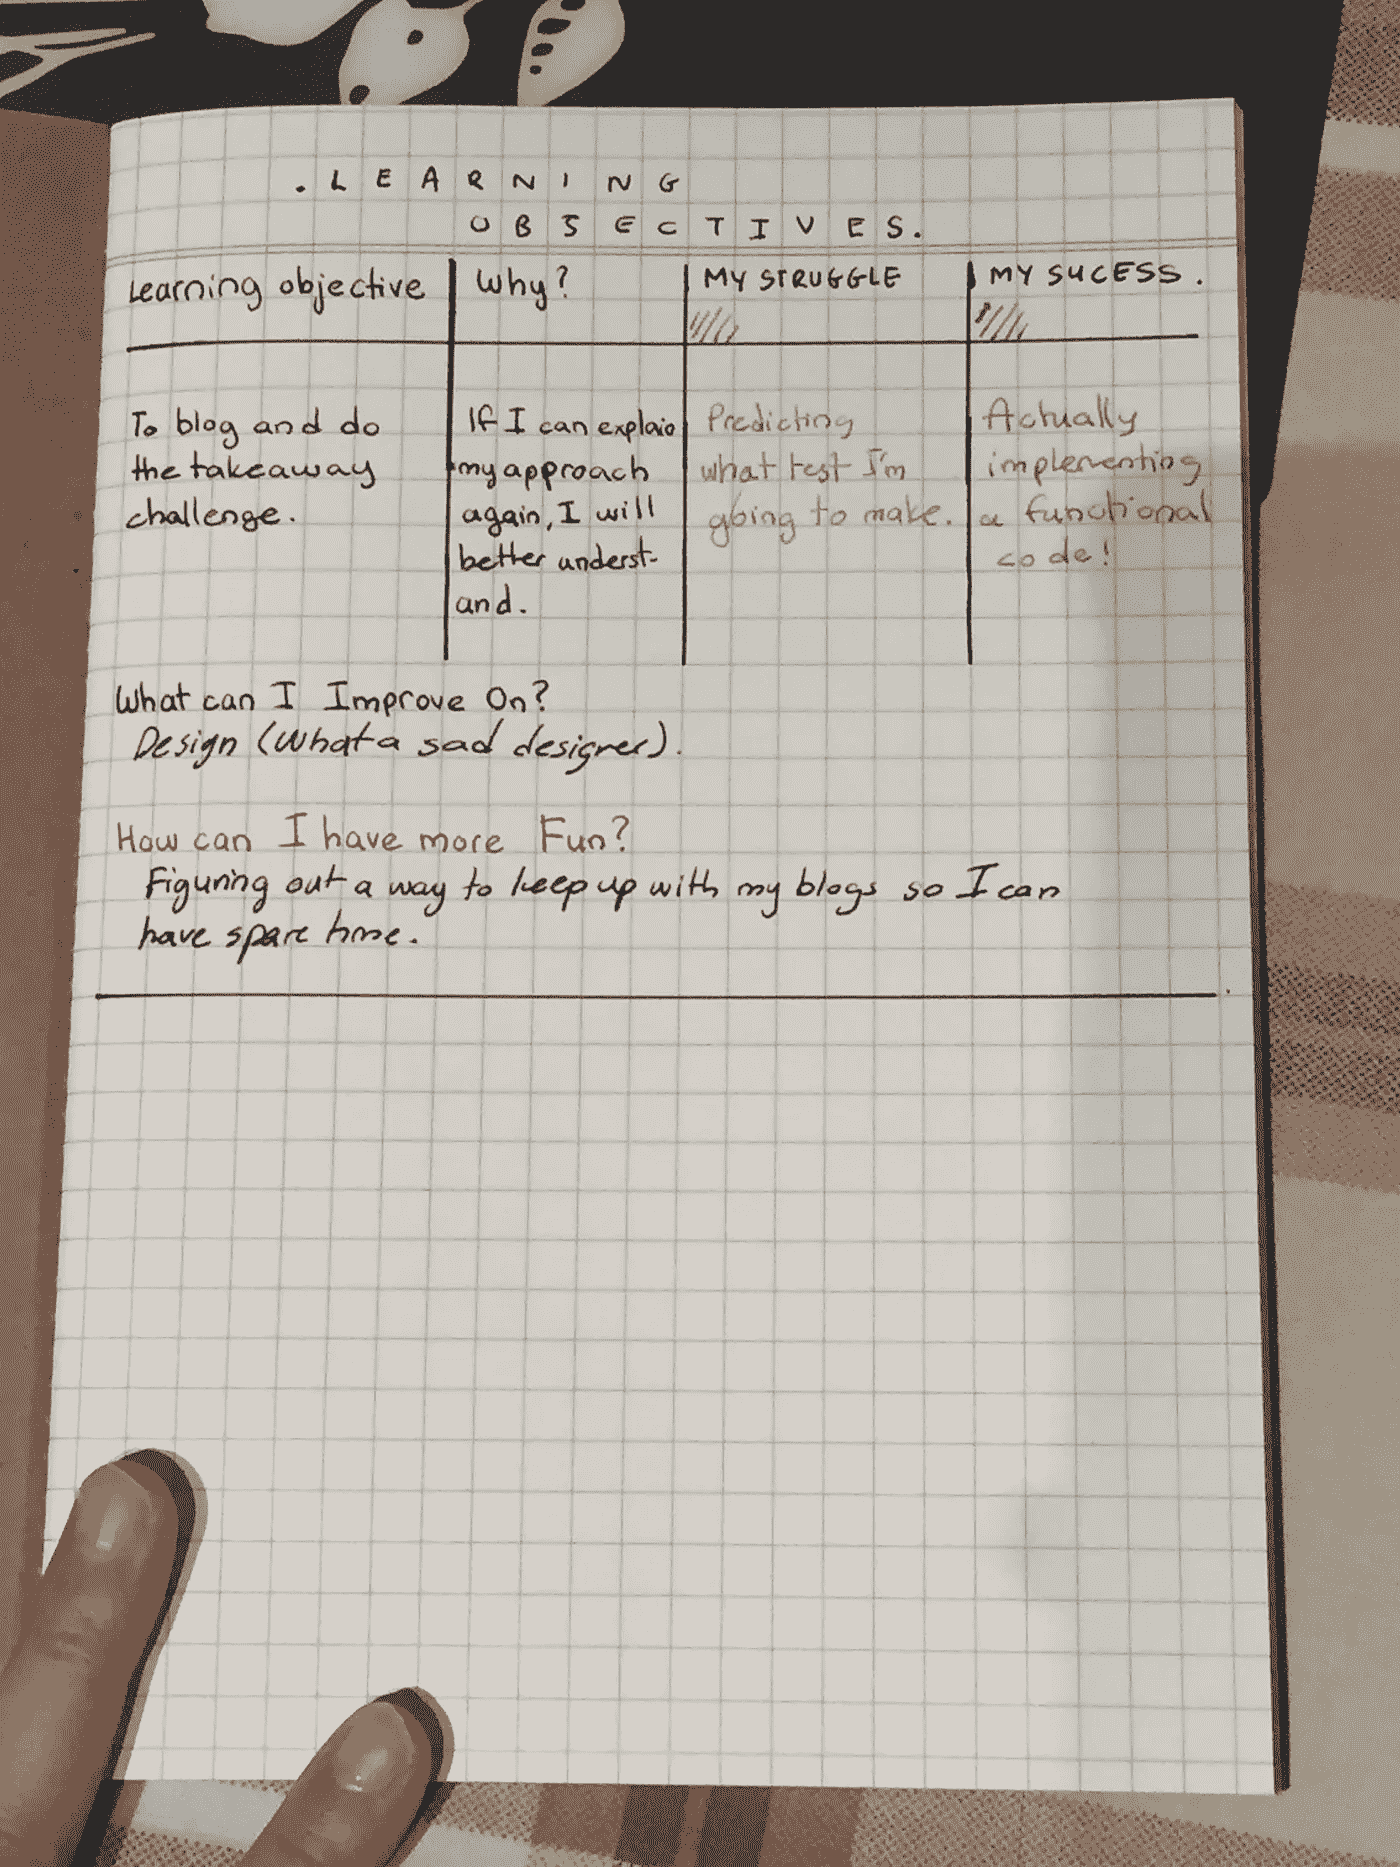 . LEARNING
OBJECTIVES.
Learning objective
Why?
MY STRUGGLE
MY SUCESS.
To blog and do
the takeaway
challenge.
If I can explain
my approach
again, I will
better underst-
and.
Predicting
what test I'm
going to make.
Actually
implementing
a functional
code!
What can I Improve On?
Design (What a sad designer).
How can I have more Fun?
Figuring out a way to keep up with my blogs so I can
have spare time.